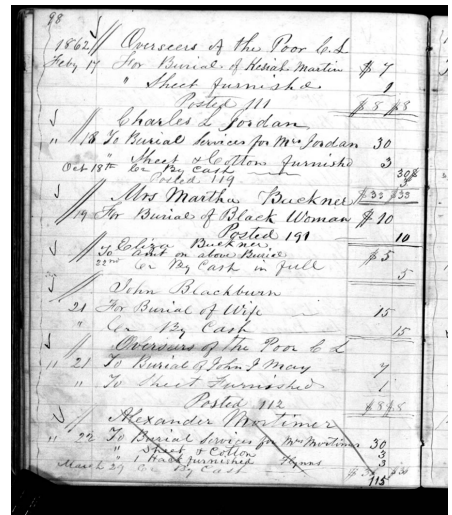 98
1862 // Overseers of the Poor C. L
Feby 17 For Burial of Kesiah Martin $ 7
" Sheet furnished 1
Posted 111 $8 $8
// Charles L Jordan
" 18 To Burial Services for Mrs Jordan 30
" Sheet & Cotton furnishd 3
Oct 18th Cr By Cash 30
Posted 119 3
// Mrs Martha Buckner $33 $33
" 19 For Burial of Black Woman $10
Posted 191 10
// Eliza Buckner
To Amt on above Burial $5
22nd Cr By Cash in full 5
// John Blackburn
21 For Burial of Wife 15
" Cr By Cash 15
// Overseers of the Poor C L
" 21 To Burial of John J May 7
" To Sheet Furnished 1
Posted 112 $8 $8
// Alexander Mortimer
" 22 To Burial services for Mrs Mortimer 30
" Sheet & Cotton 3
" 1 Hack furnished Flynns 3
March 27 Cr By Cash